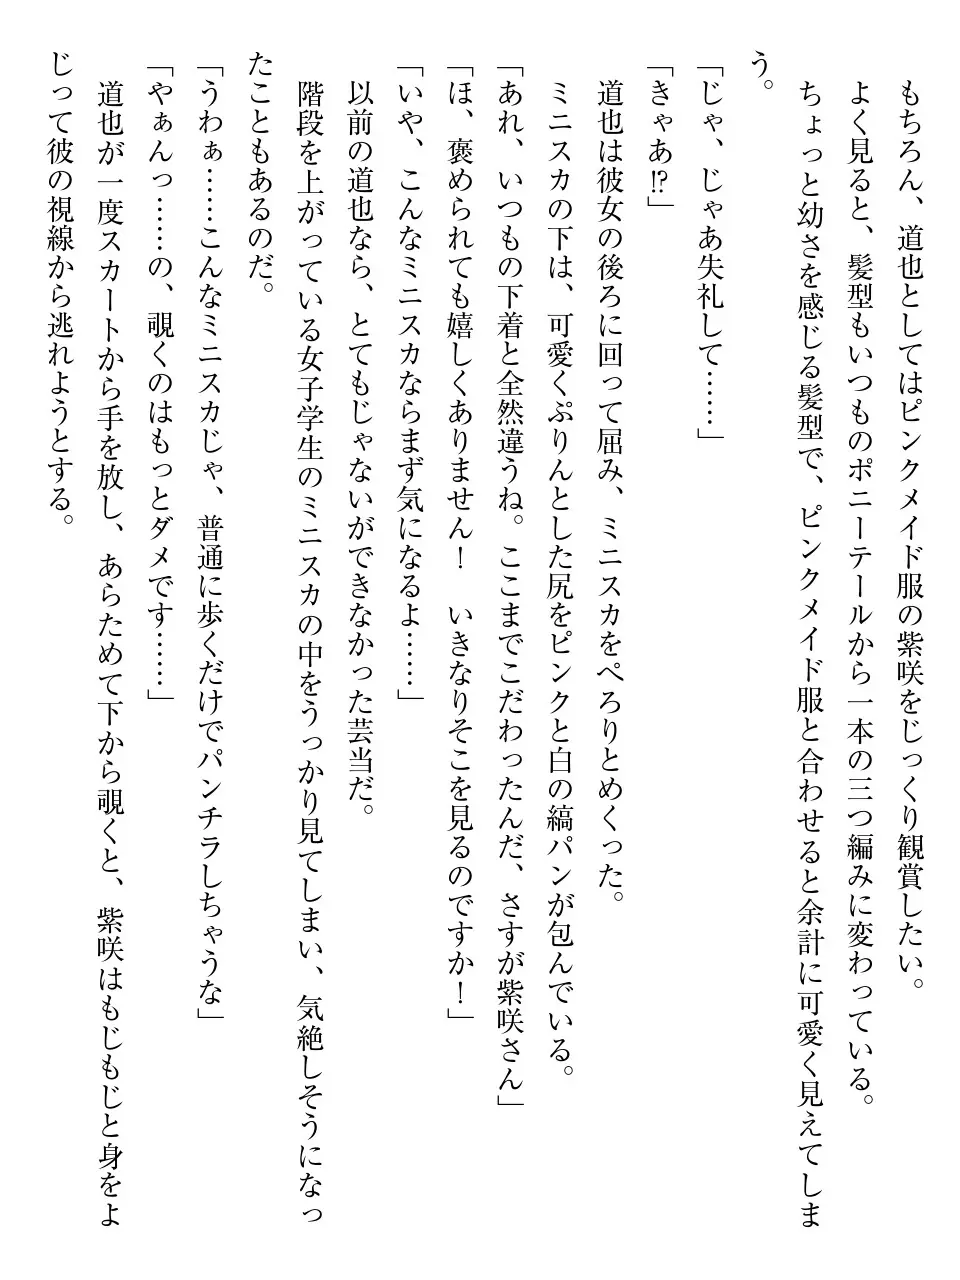 もちろん、道也としてはピンクメイド服の紫咲をじっくり観賞したい。
よく見ると、髪型もいつものポニーテールから一本の三つ編みに変わっている。
ちょっと幼さを感じる髪型で、ピンクメイド服と合わせると余計に可愛く見えてしま
う。
「じゃ、じゃあ失礼して……」
「きゃあ⁉」
道也は彼女の後ろに回って屈み、ミニスカをぺろりとめくった。
ミニスカの下は、可愛くぷりんとした尻をピンクと白の縞パンが包んでいる。
「あれ、いつもの下着と全然違うね。ここまでこだわったんだ、さすが紫咲さん」
「ほ、褒められても嬉しくありません！　いきなりそこを見るのですか！」
「いや、こんなミニスカならまず気になるよ……」
以前の道也なら、とてもじゃないができなかった芸当だ。
階段を上がっている女子学生のミニスカの中をうっかり見てしまい、気絶しそうになっ
たこともあるのだ。
「うわぁ……こんなミニスカじゃ、普通に歩くだけでパンチラしちゃうな」
「やぁんっ……の、覗くのはもっとダメです……」
道也が一度スカートから手を放し、あらためて下から覗くと、紫咲はもじもじと身をよ
じって彼の視線から逃れようとする。